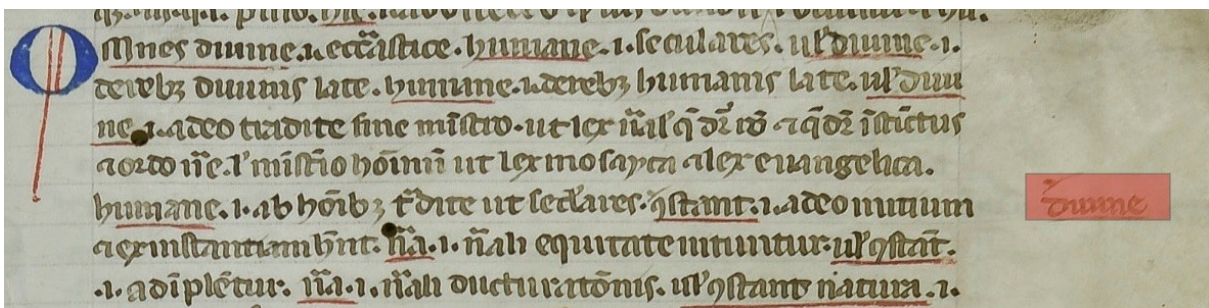 Omnes diuine .i. ecc̄astice. humane .i. seculares. ul' diuine .i.
de rebꝫ diuinis late. humane .i. de rebꝫ humanis late. ul' diui
ne .i. a deo tradite sine mīstro. ut lex n̄al' q̄ dr̄ rō ⁊ q̄ dr̄ īstīctus
⁊ ordo n̄e. l' mīstīo hōinū ut lex mosayca ⁊ lex euangelica.
diuine
humane .i. ab hōibꝫ t̄dite ut sec'lares. ꝯstant .i. a deo initium
⁊ ex instantiam hn̄t. n̄a .i. n̄ali equitate nituntur. ul' ꝯstāt.
.i. adīplētur. n̄a .i. n̄ali ductu ratōnis. ul' ꝯstant natura .i.